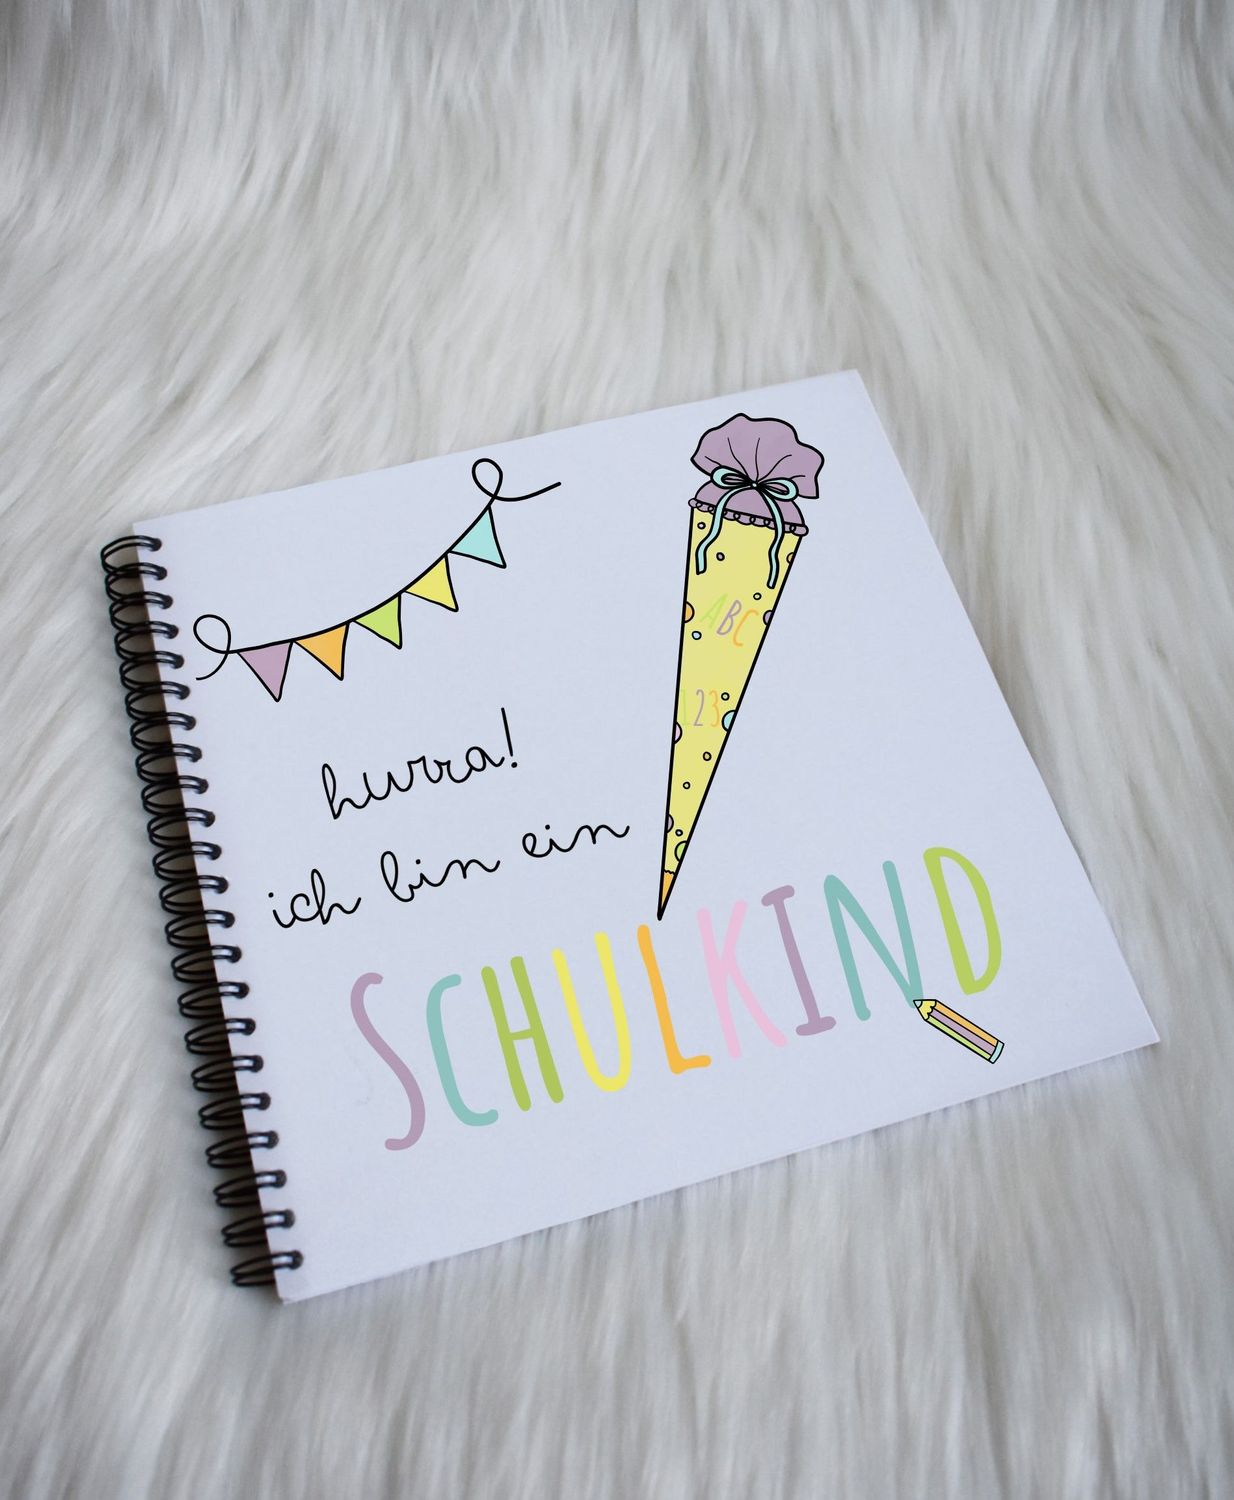 hurra!
ich bin ein
SCHULKIND
ABC
123